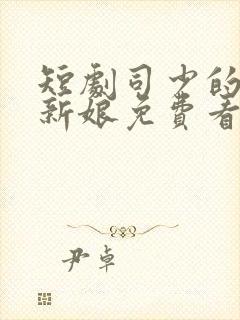 短劇司少的
新娘免費看
尹卓